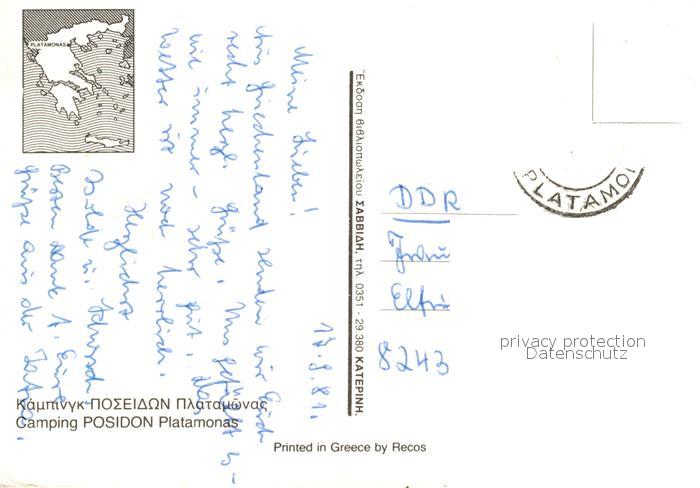 PLATAMONAS
Meine Lieben!
17.9.81.
Aus Griechenland senden wir Euch
recht herzl. Grüße. Uns gefällt es
wie immer - sehr gut. Das
Wetter ist noch herrlich.
Herzlichst
Besten Dank f. Eure
Grüße aus der Tatra.
Έκδοση βιβλιοπωλείου ΣΑΒΒΙΔΗ, τηλ. 0351 - 29.380 ΚΑΤΕΡΙΝΗ.
PLATAMO
DDR
8243
privacy protection
Datenschutz
Κάμπινγκ ΠΟΣΕΙΔΩΝ Πλαταμώνας
Camping POSIDON Platamonas
Printed in Greece by Recos